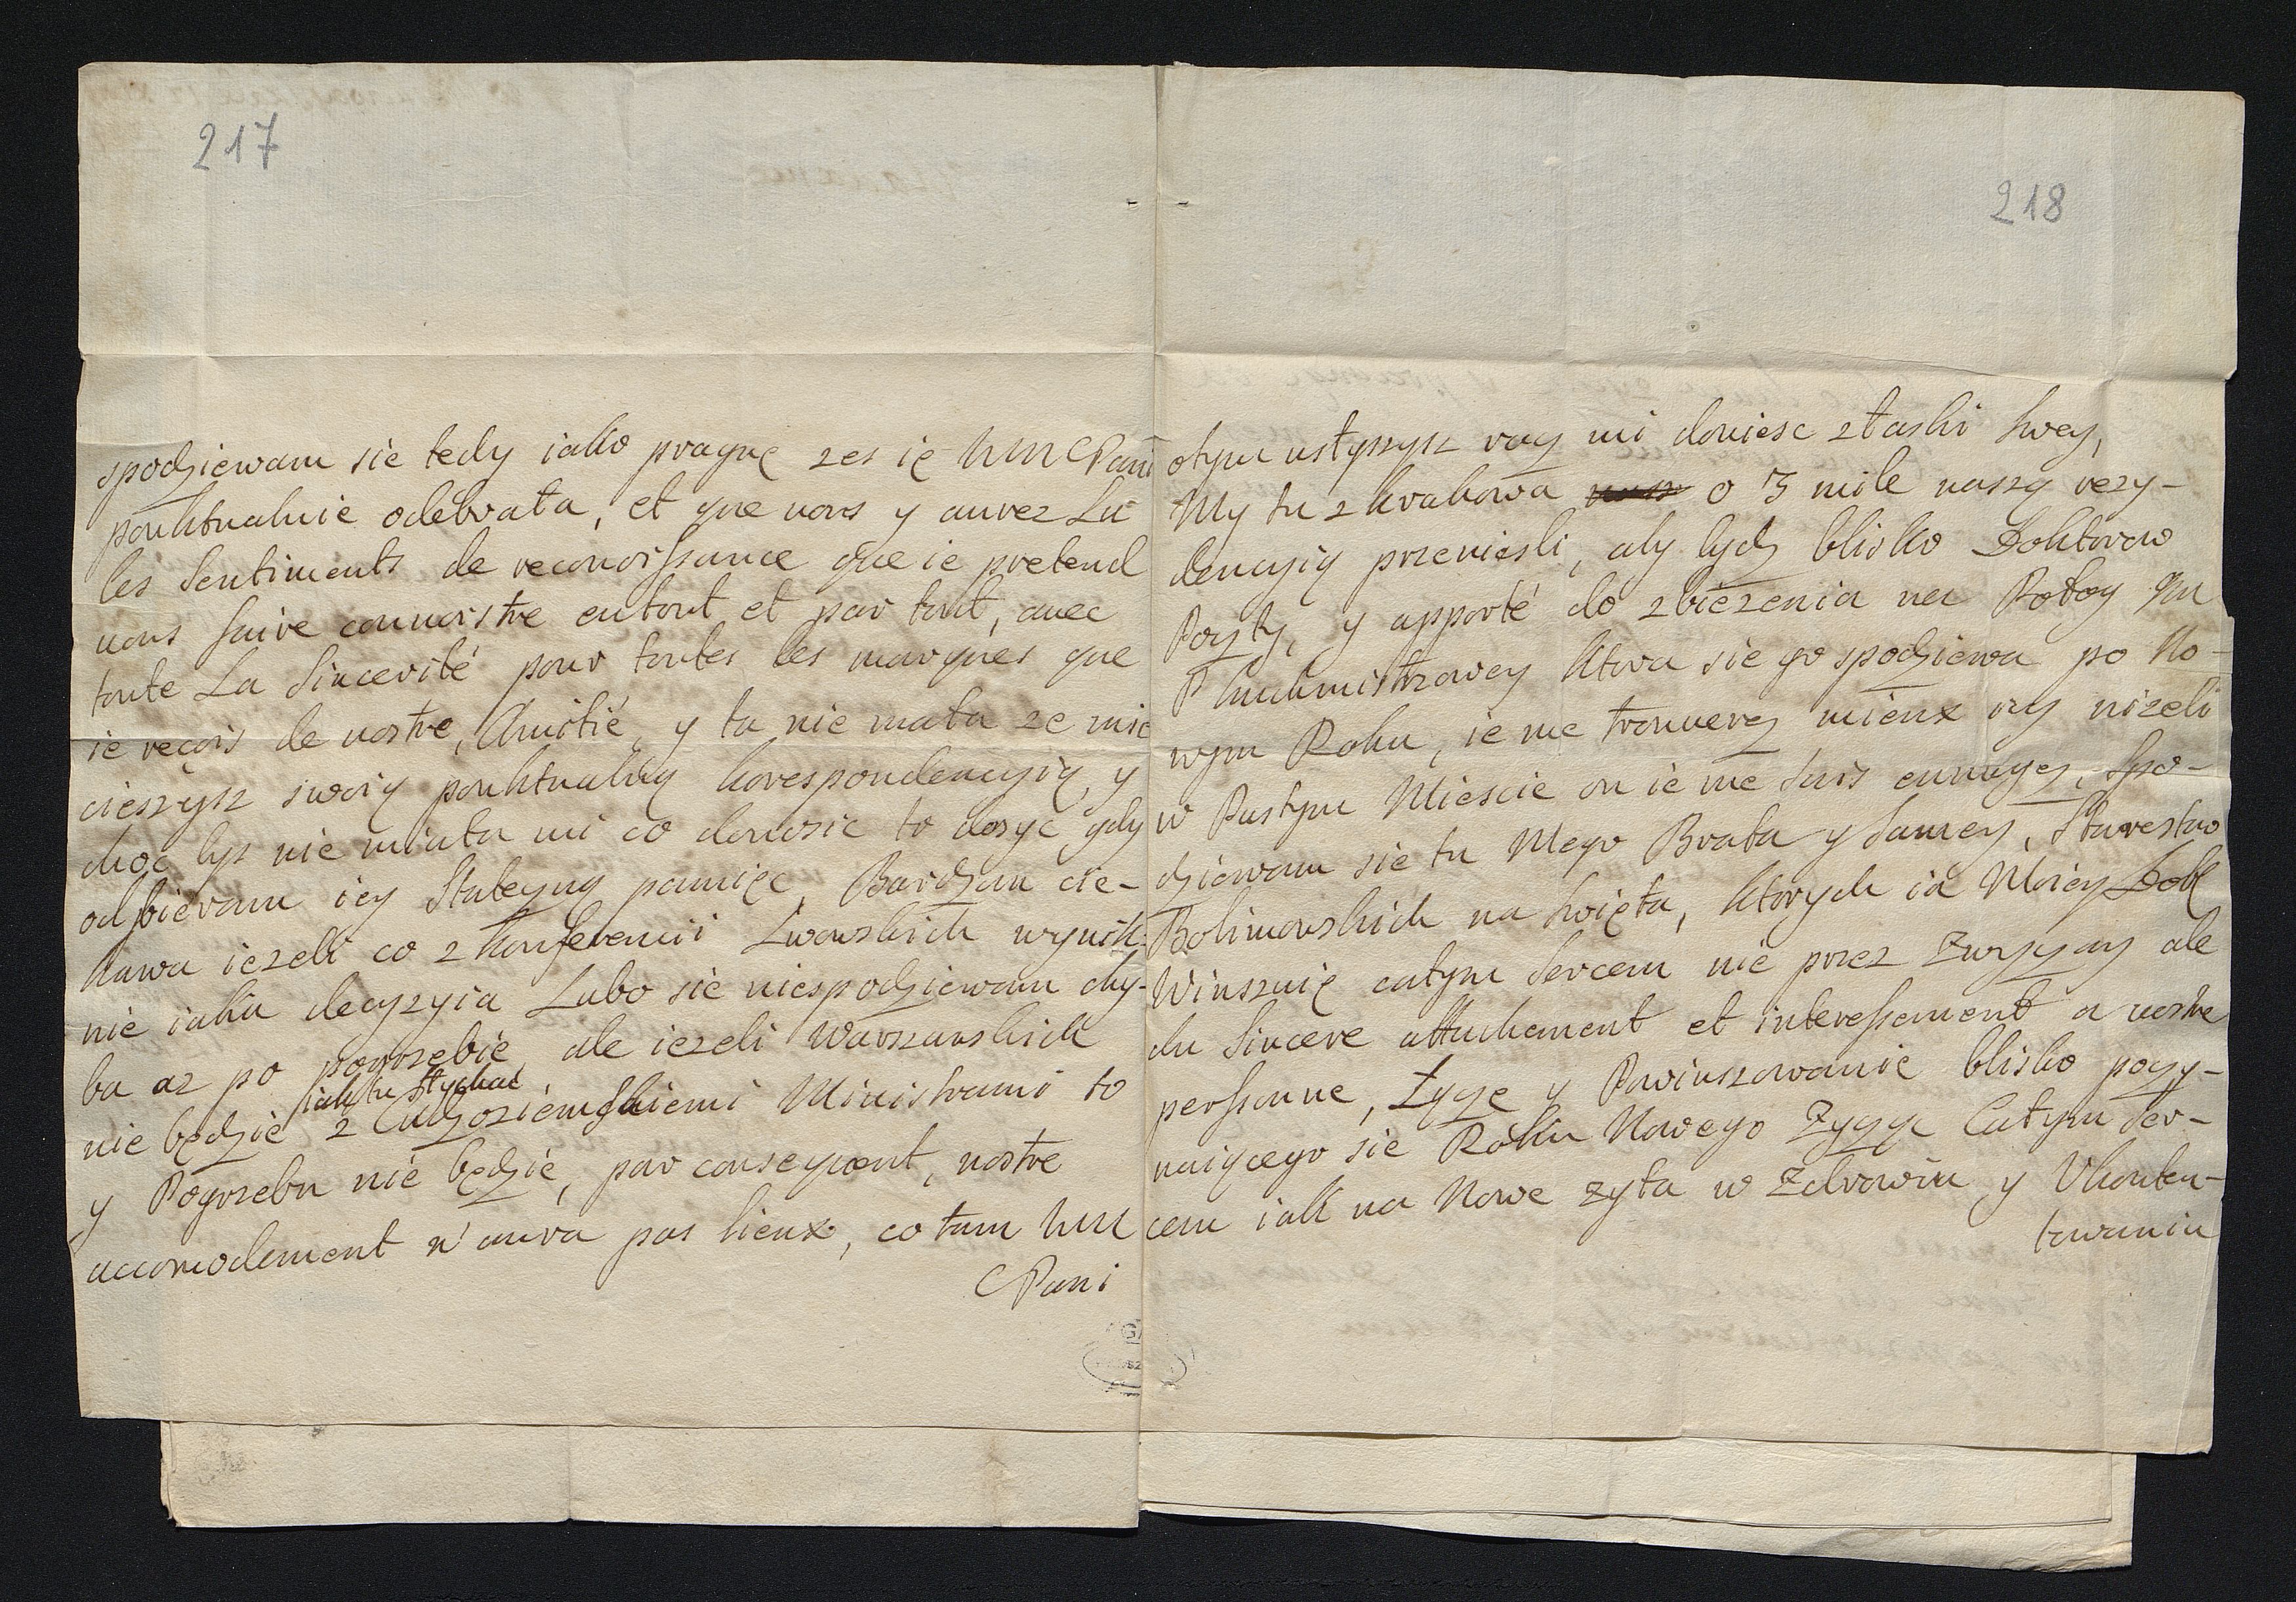 217
spodziewam sie tedy iako pragnę zes ię WM Pani
punktualnie odebrała, et que vous y aurez Lu
les Sentiments de reconoissance que ie pretend
vous faire connoistre en tout et par tout, avec
toute La Sincerité pour toutes les marques que
ie reçois de vostre, Amitié, y ta nie mała ze mie
cieszysz swoią punktualną korespondencyią, y
choc bys nie miała mi co donosic to dosyc gdy
odbieram iey Stateczną pamięc, Bardzom cie-
kawa iezeli co z konferencii Lwowskich wynik-
nie iaka decyzyia Lubo sie niespodziewam chy-
ba az po pogrzebie, ale iezeli Warszawskich
iak tu słychac
nie będzie z Cudzoziemskiemi Ministrami to
y Pogrzebu nie będzie, par consequent, vostre
accomodement n'aura pas lieux, co tam WM
Pani
218
otym usłyszysz racz mi doniesc złaski swey,
My tu z krakowa o 3 mile naszą rezy-
dencyią przeniesli, aby bydz blisko Doktorow
Poczty, y apporté do zbiezenia na Połog
P kuchmistrzowey ktora sie go spodziewa po No-
wym Roku, ie me trouverez mieux icy nizeli
w Pustym Miescie ou ie me suis ennuyez, Spo-
dziewam sie tu Mego Brata y Samey, Starostwo
Bolimowskich na Swięta, ktorych ia Moiey Dob
Winszuię całym Sercem nie przez Zwyczay ale
du Sincere attachement et interessement a vostre
personne, Łączę y Powinszowanie blisko poczy-
naiącego sie Roku Nowego Zyczę Całym Ser-
cem iak na Nowe zyta w Zdrowiu y Ukonten-
towaniu